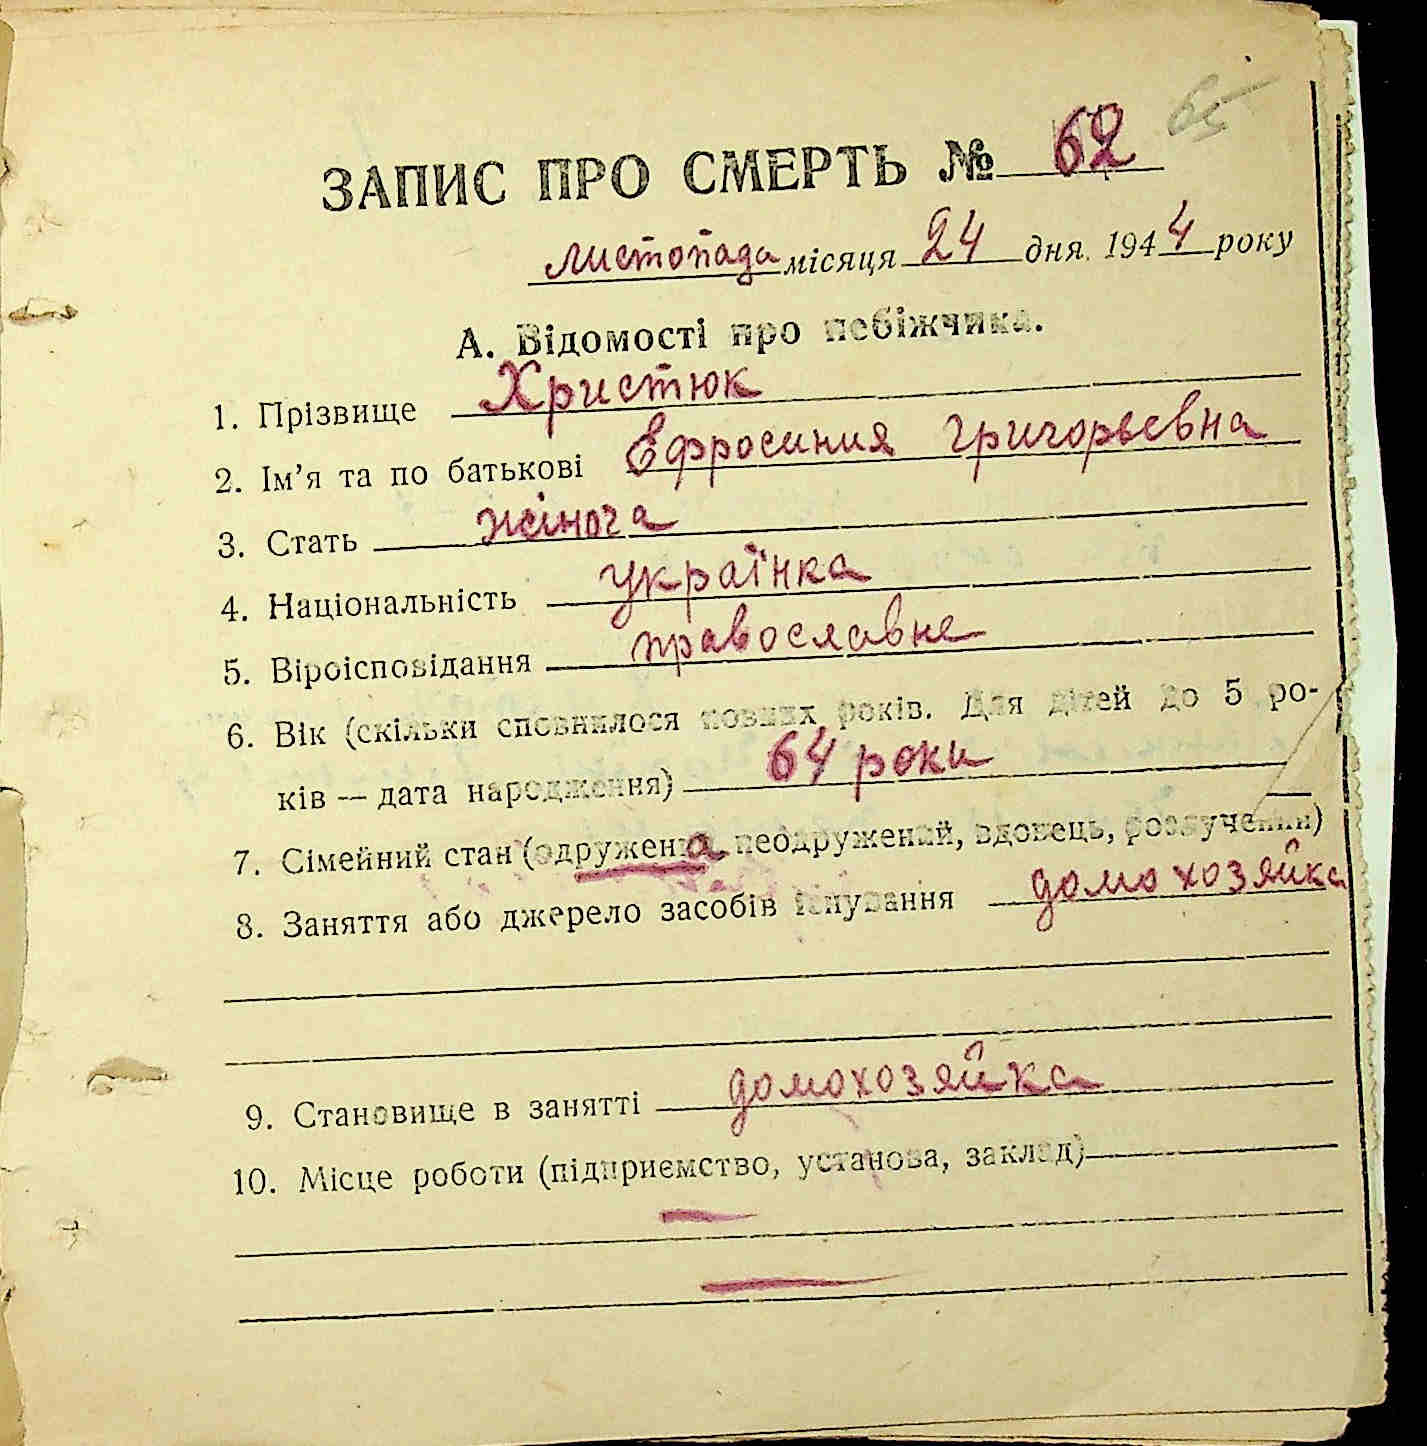 65
ЗАПИС ПРО СМЕРТЬ № 62
листопада місяця 24 дня 1944 року
А. Відомості про небіжчика.
1. Прізвище Христюк
2. Ім’я та по батькові Ефросиния Григорьевна
3. Стать жіноча
4. Національність українка
5. Віроісповідання православне
6. Вік (скільки сповнилося повних років. Для дітей до 5 ро-
ків — дата народження) 64 роки
7. Сімейний стан (одружена, неодружений, вдовець, розлучений)
8. Заняття або джерело засобів існування домохозяйка
9. Становище в занятті домохозяйка
10. Місце роботи (підприємство, установа, заклад)
—
—